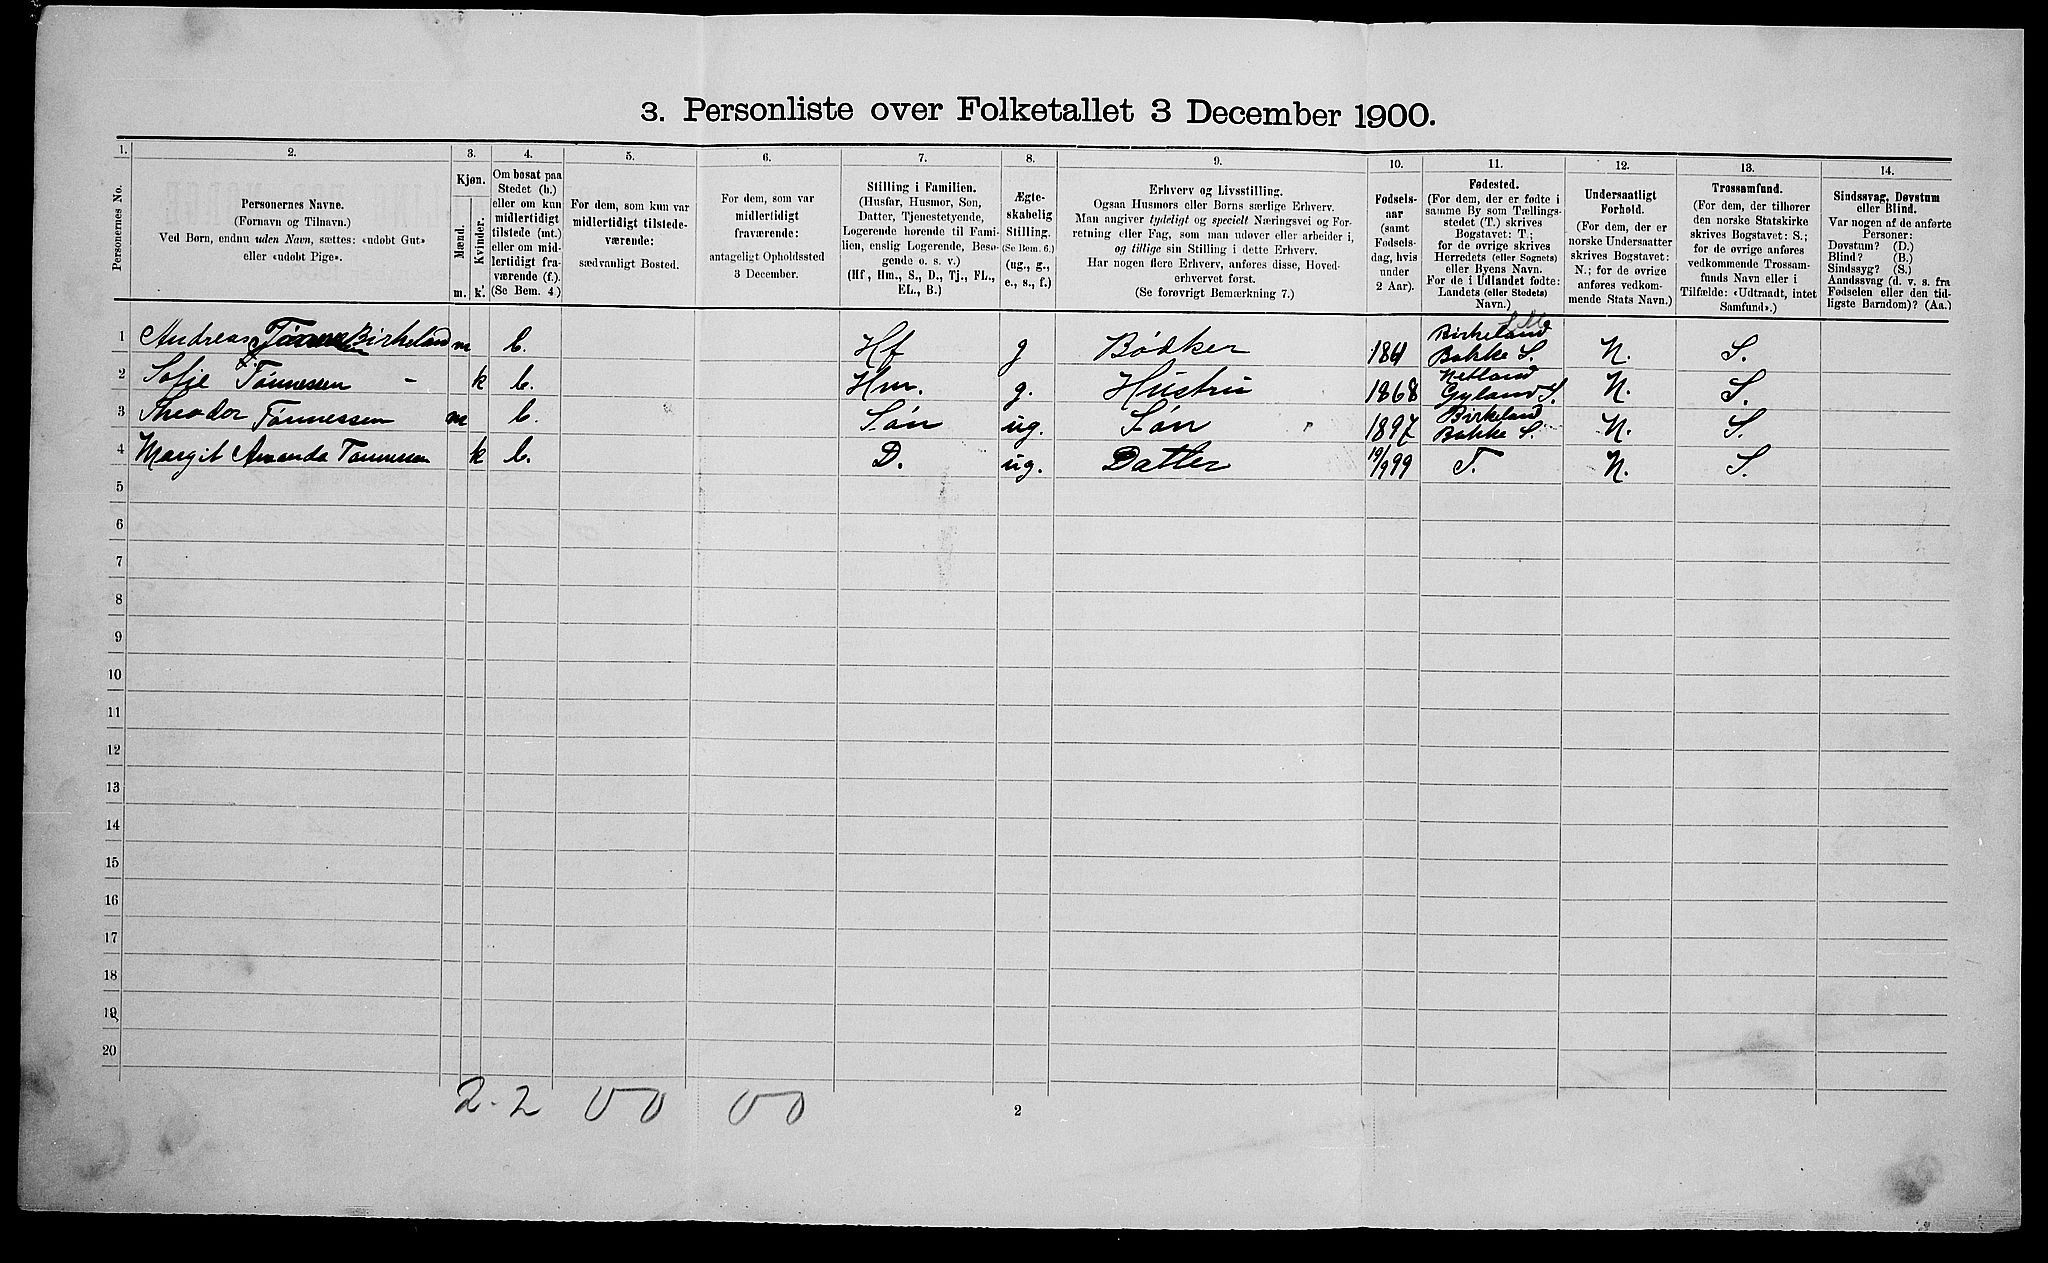 3. Personliste over Folketallet 3 December 1900.
1. 2. 3. 4. 5. 6. 7. 8. 9. 10. 11. 12. 13. 14.
Personernes No.
Personernes Navne.
(Fornavn og Tilnavn.)
Ved Børn, endnu uden Navn, sættes: «udøbt Gut»
eller «udøbt Pige».
Kjøn.
Mænd.
Kvinder.
m. k.
Om bosat paa
Stedet (b.)
eller om kun
midlertidigt
tilstede (mt.)
eller om mid-
lertidigt fra-
værende (f.).
(Se Bem. 4.)
For dem, som kun var
midlertidigt tilstede-
værende:
sædvanligt Bosted.
For dem, som var
midlertidigt
fraværende:
antageligt Opholdssted
3 December.
Stilling i Familien.
(Husfar, Husmor, Søn,
Datter, Tjenestetyende,
Logerende hørende til Fami-
lien, enslig Logerende, Besø-
gende o. s. v.)
(Hf, Hm., S., D., Tj., FL.,
EL., B.)
Ægte-
skabelig
Stilling.
(Se Bem. 6.)
(ug., g.,
e., s., f.)
Erhverv og Livsstilling.
Ogsaa Husmors eller Børns særlige Erhverv.
Man angiver tydeligt og specielt Næringsvei og For-
retning eller Fag, som man udøver eller arbeider i,
og tillige sin Stilling i dette Erhverv.
Har nogen flere Erhverv, anføres disse, Hoved-
erhvervet først.
(Se forøvrigt Bemærkning 7.)
Fødsels-
aar
(samt
Fødsels-
dag, hvis
under
2 Aar).
Fødested.
(For dem, der er fødte i
samme By som Tællings-
stedet (T.) skrives
Bogstavet: T.;
for de øvrige skrives
Herredets (eller Sognets)
eller Byens Navn.
For de i Udlandet fødte:
Landets (eller Stedets)
Navn.)
Undersaatligt
Forhold.
(For dem, der er
norske Undersaatter
skrives Bogstavet:
N.; for de øvrige
anføres vedkom-
mende Stats Navn.)
Trossamfund.
(For dem, der tilhører
den norske Statskirke
skrives Bogstavet: S.;
for de øvrige anføres
vedkommende Trossam-
funds Navn eller i
Tilfælde: «Udtraadt, intet
Samfund».)
Sindssvag, Døvstum
eller Blind.
Var nogen af de anførte
Personer:
Døvstum? (D.)
Blind? (B.)
Sindssyg? (S.)
Aandssvag (d. v. s. fra
Fødselen eller den tid-
ligste Barndom)? (Aa.)
1 Andreas Birkeland m b. Hf g Bødker 1861 Birkeland Bakke S. N. S.
2 Sofie Tønnessen - k b. Hm. g. Hustru 1868 Netland Gyland S. N. S.
3 Theodor Tønnessen m b. Søn ug. Søn 1897 Birkeland Bakke S. N. S.
4 Margit Amanda Tønnessen k b. D. ug. Datter 19/9 99 T. N. S.
5
6
7
8
9
10
11
12
13
14
15
16
17
18
19
20
2. 2 00 00
2